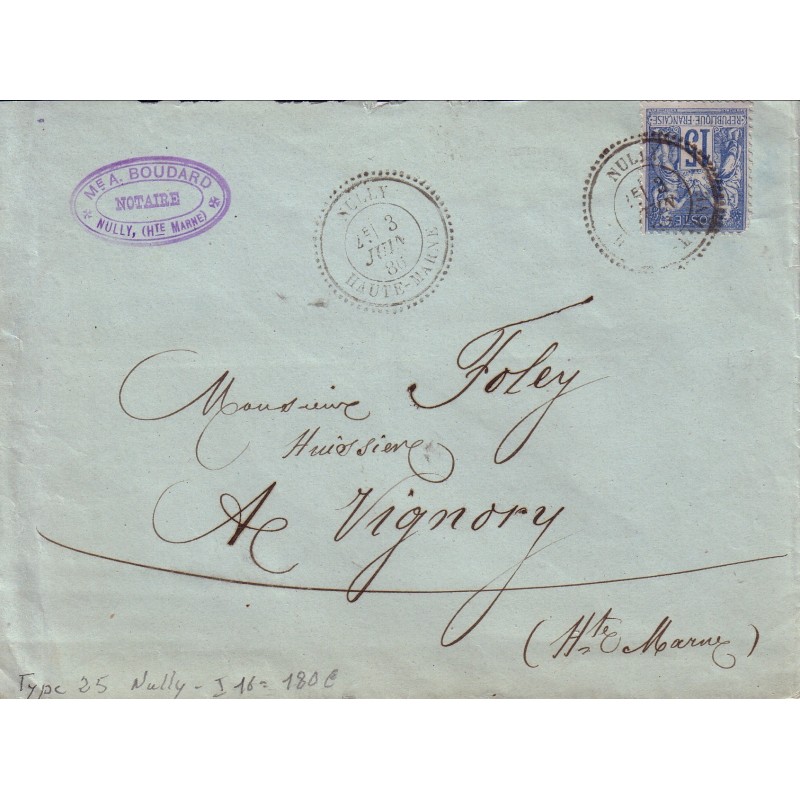 Mᴱ A. BOUDARD
NOTAIRE
NULLY, (Hᵀᴱ MARNE)
NULLY
2ᴱ 3
JUIN
86
HAUTE-MARNE
NULLY
2ᴱ 3
REPUBLIQUE FRANÇAISE
15
POSTE
Monsieur Foley
Huissier
A Vignory
(Hte Marne)
Type 25 Nully - I 16 = 180 €